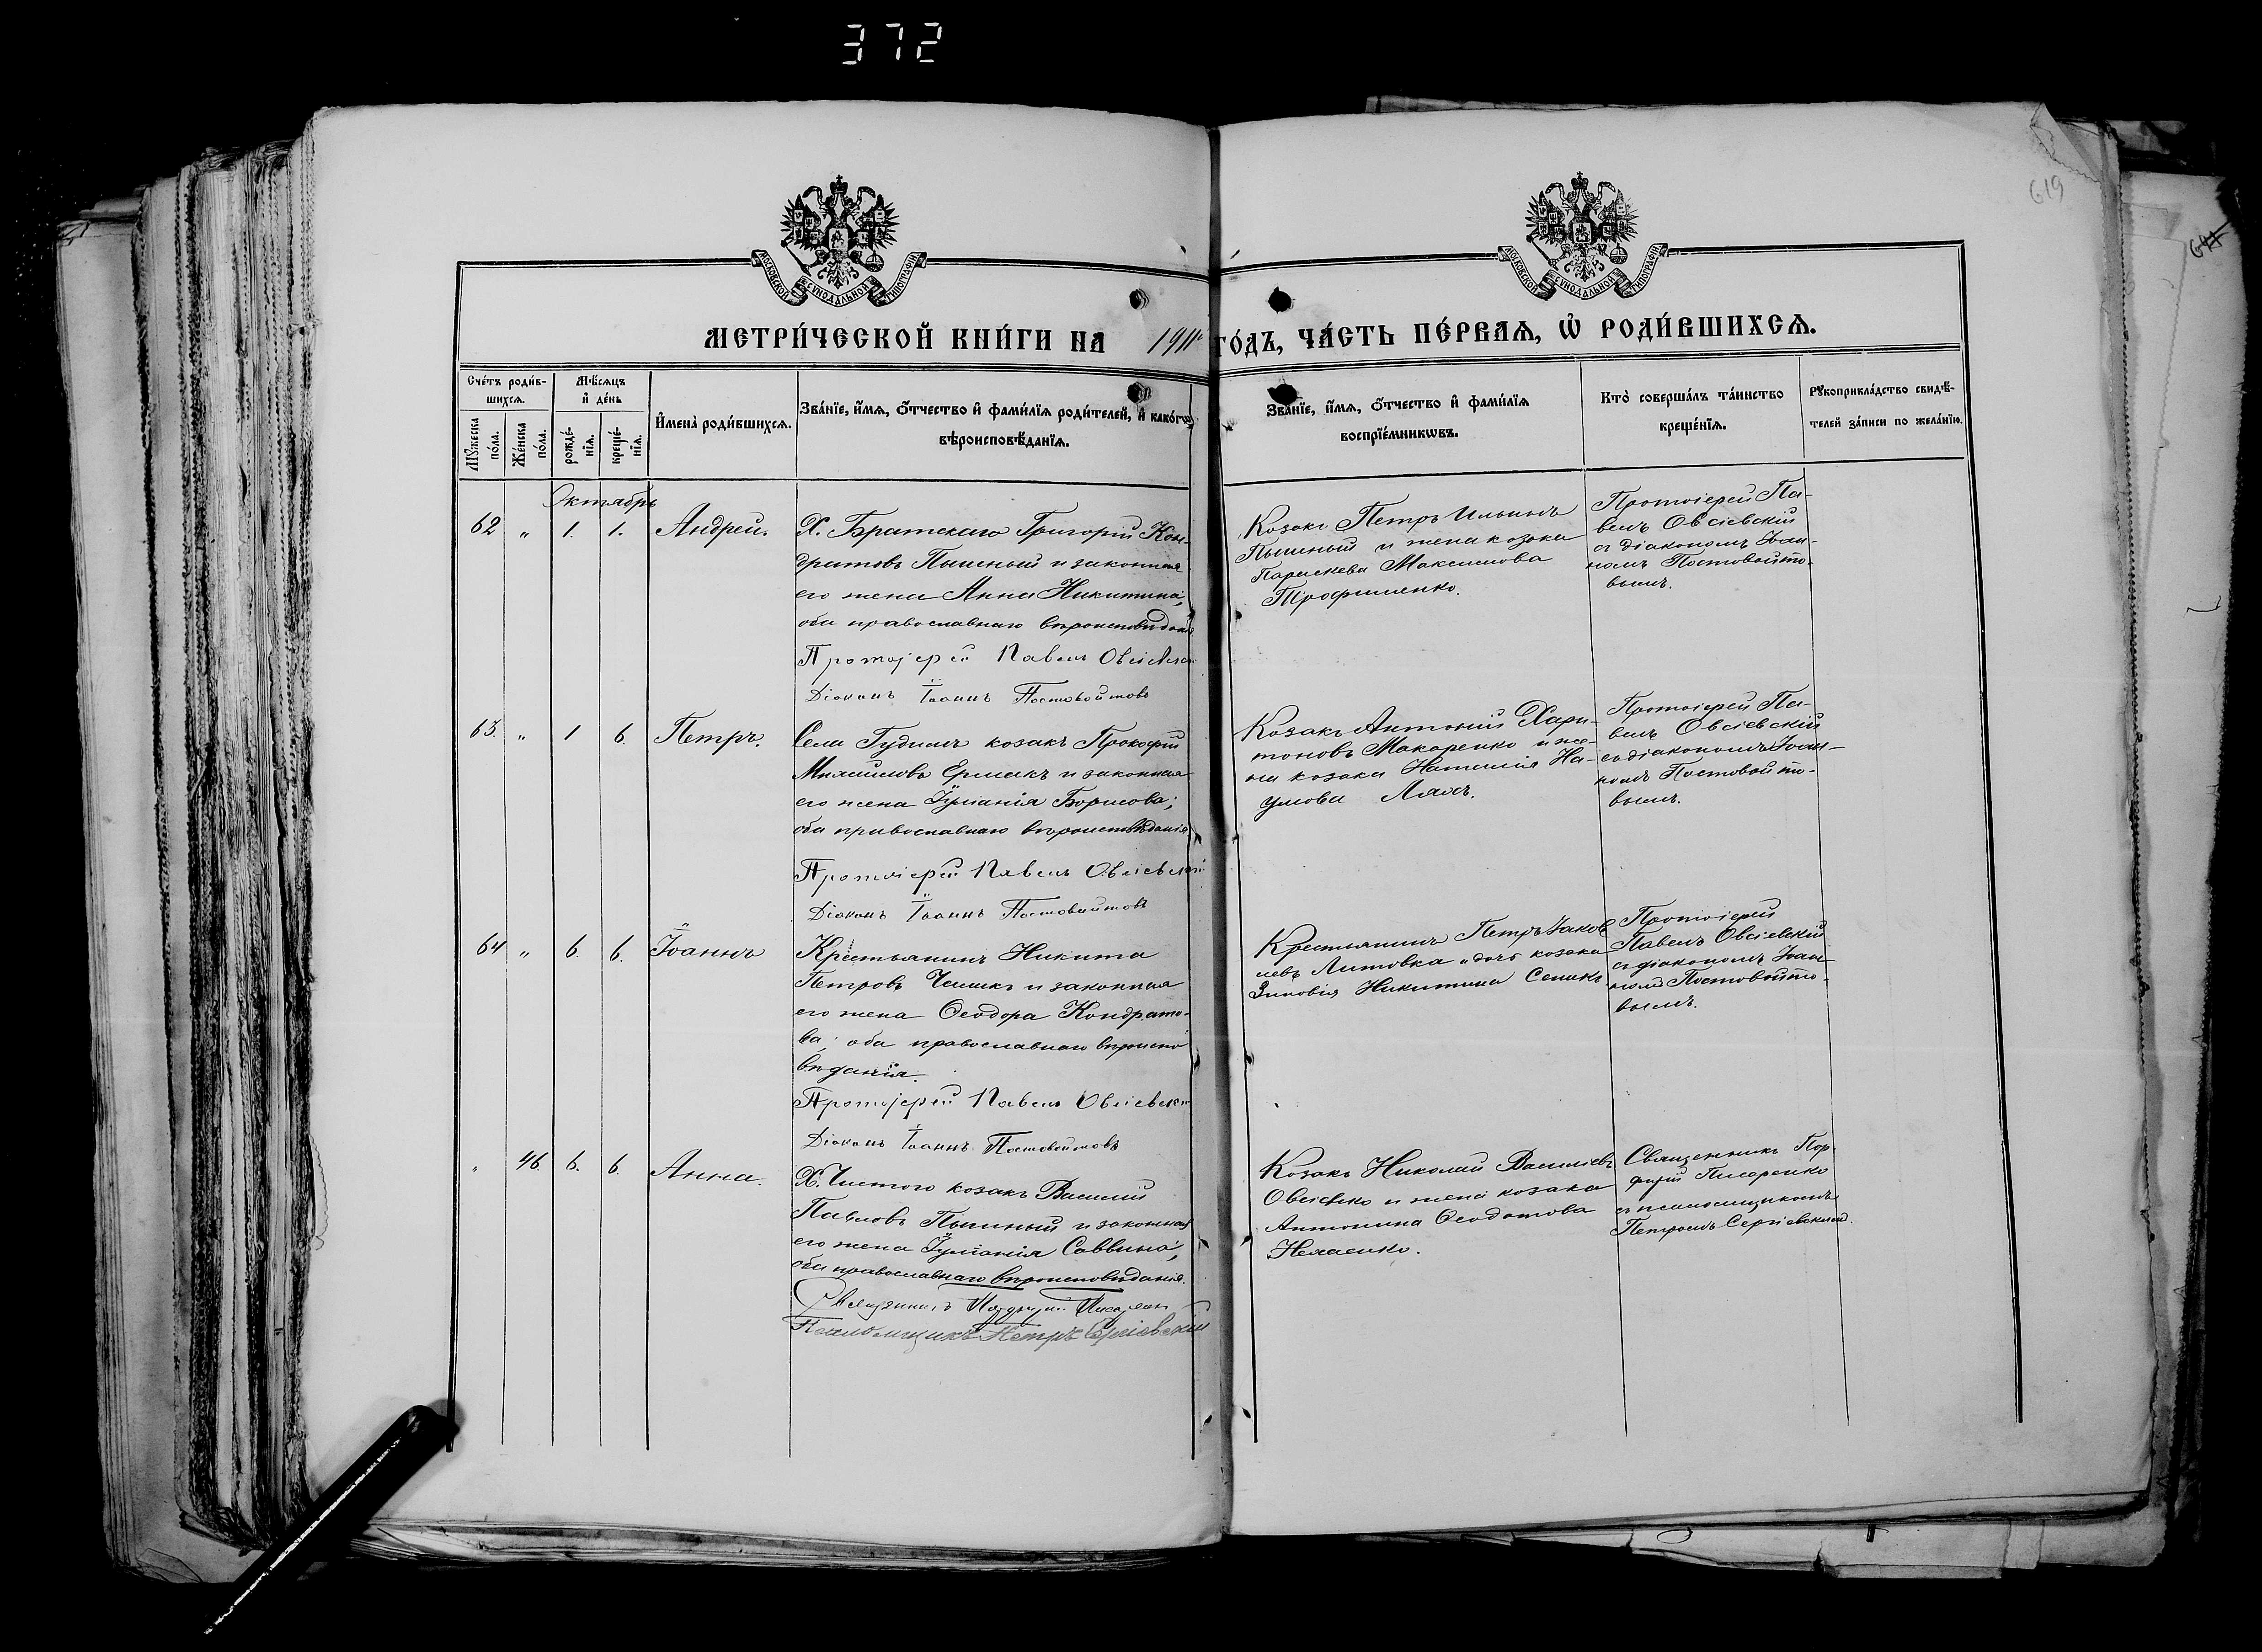 372
619
МОСКОВСКОЙ СѴНОДАЛЬНОЙ ТИПОГРАФІИ
МОСКОВСКОЙ СѴНОДАЛЬНОЙ ТИПОГРАФІИ
МЕТРИ́ЧЕСКОЙ КНИ́ГИ НА 1911 ГО́ДЪ, ЧА́СТЬ ПЕ́РВАѦ, Ѽ РОДИ́ВШИХСѦ.
Сче́тъ роди́в-
шихсѧ.
Мѹжеска
по́ла.
Же́нска
по́ла.
Мѣ́сѧцъ
и҆ де́нь
рожде́-
нїѧ.
креще́-
нїѧ.
И҆мена̀ роди́вшихсѧ.
Зва́нїе, и҆́мѧ, ѻ҆́тчество и҆ фами́лїѧ роди́телей, и҆ како́гѡ
вѣроисповѣ́данїѧ.
Зва́нїе, и҆́мѧ, ѻ҆́тчество и҆ фами́лїѧ
воспрїе́мникѡвъ.
Кто̀ соверша́лъ та́инство
креще́нїѧ.
Рѹкоприкла́дство свидѣ́-
телей за́писи по жела́нїю.
Октябрь
62 " 1. 1. Андрей.
Х. Братскаго Григорій Кон-
дратовъ Пышный и законная
его жена Анна Никитина,
оба православнаго вѣроисповѣдан
Протоіерей Павелъ Овсіевскі
Діаконъ Іоаннъ Постовойтовъ
Козакъ Петръ Ильинъ
Пышный и жена козака
Параскева Максимова
Трофименко.
Протоіерей Па-
велъ Овсіевскій
съ діакономъ Іоан-
номъ Постовойто-
вымъ.
63. " 1 6. Петръ.
Села Гудимъ козакъ Прокофій
Михайловъ Ермакъ и законная
его жена Іуліанія Борисова;
оба православнаго вѣроисповѣданія.
Протоіерей Павелъ Овсіевскій
Діаконъ Іоаннъ Постовойтовъ
Козакъ Антоній Хари-
тоновъ Макаренко и же-
на козака Наталія На-
умова Ляхъ.
Протоіерей Па-
велъ Овсіевскій
съ діакономъ Іоан-
номъ Постовойто-
вымъ.
64 " 6. 6. Іоаннъ
Крестьянинъ Никита
Петровъ и законная
его жена Ѳеодора Кондрато-
ва; оба православнаго вѣроиспо
вѣданія.
Протоіерей Павелъ Овсіевскі
Діаконъ Іоаннъ Постовойтовъ
Крестьянинъ Петръ Іаков
левъ Литовка и дочь козака
Зиновія Никитина
Протоіерей
Павелъ Овсіевскій
съ діакономъ Іоан-
номъ Постовойто-
вымъ.
" 46 6. 6. Анна.
Х. Чистого козакъ Василій
Павловъ Пышный и законная
его жена Іуліанія Саввина,
оба православнаго вѣроисповѣданія.
Священникъ Порфирій Писарен
Псаломщикъ Петръ Сергіевскій
Козакъ Николай Васильевъ
Овсіенко и жена козака
Антонина Ѳеодотова
Священникъ Пор-
фирій Писаренко
съ псаломщикомъ
Петромъ Сергіевскимъ.